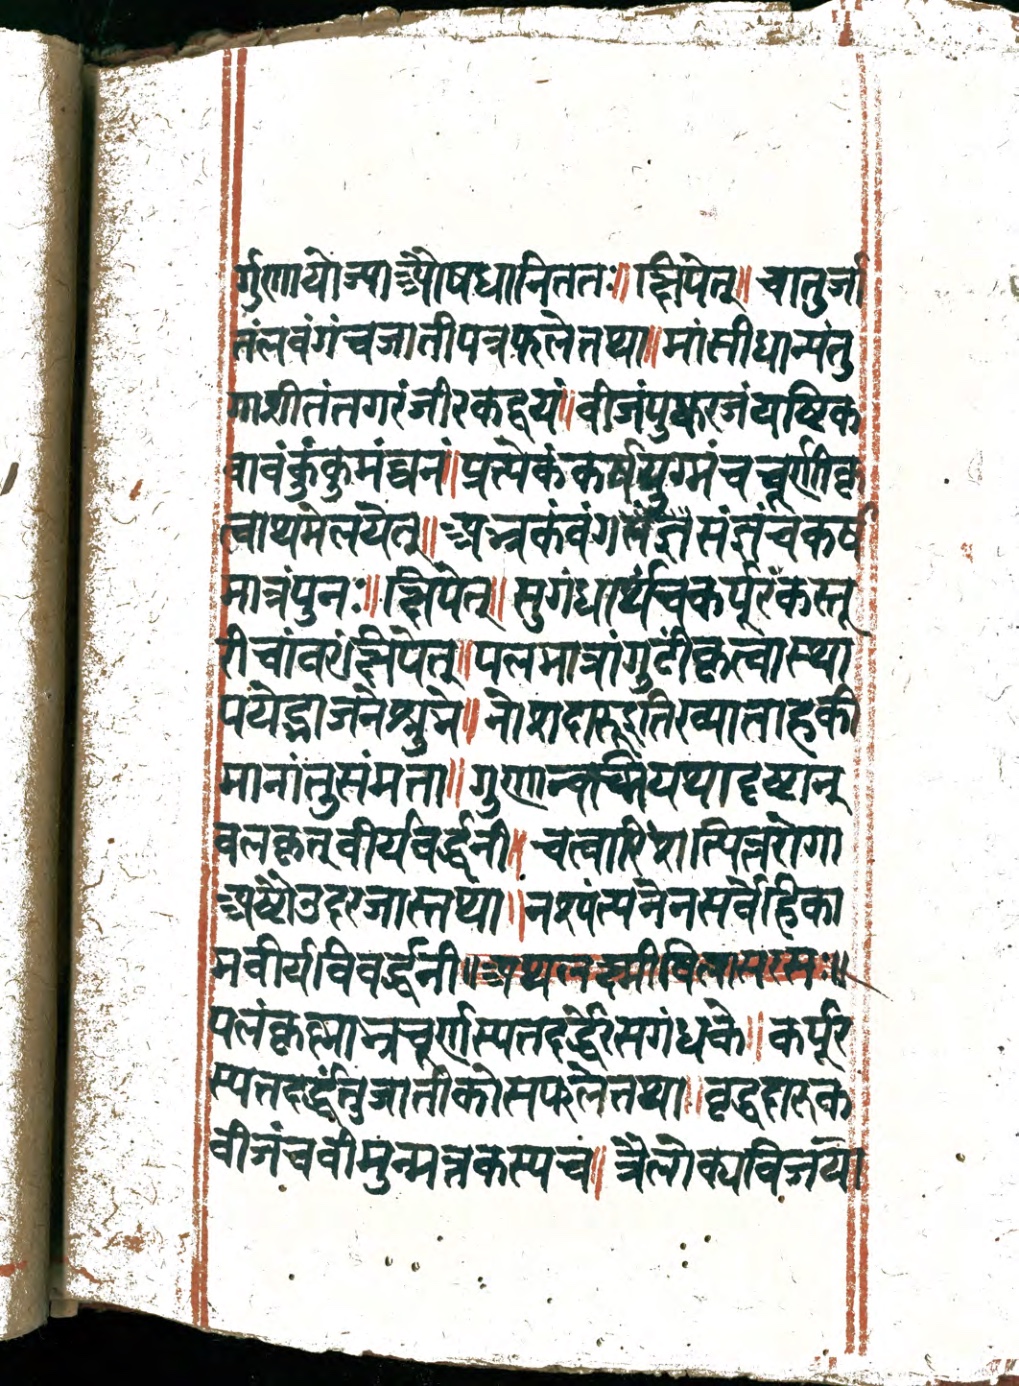 र्गुणायोज्याऔषधानिततः॥क्षिपेत्॥चातुर्जा
तंलवंगंचजातीपत्रफलेतथा॥मांसीधान्यंतु
गाशीतंतगरंजीरकद्वयं॥वीजंपुष्करजंयष्टिक
वावंकुंकुमंघनं॥प्रत्येकंकर्षयुग्मंचचूर्णीकृ
त्वाथमेलयेत्॥अभ्रकंवंग
मात्रंपुनः॥क्षिपेत्॥सुगंधार्थंचकर्पूरंकस्तू
रींचांवरंक्षिपेत्॥पलमात्रांगुटींकृत्वास्था
पयेद्भाजनेश्रुने॥नोशदारूइतिख्याताहकी
मानांतुसंमता॥गुणान्वच्मियथादृष्टान्
वलकृत्वीर्यवर्द्धनी॥चत्वारिंशत्पित्तरोगा
अष्टौउदरजास्तथा॥नश्यंत्यनेनसर्वेहिका
मवीर्यविवर्द्धनी॥अथलक्ष्मीविलासरसः॥
पलंकृत्स्नाभ्रचूर्णस्यतदर्द्धेरसगंधकै॥कर्पूर
स्यतदर्द्धंतुजातीकोसफलेतथा॥वृद्धदारुक
वीजंचवीमुन्मत्तकस्यचं॥त्रैलोक्यविजया